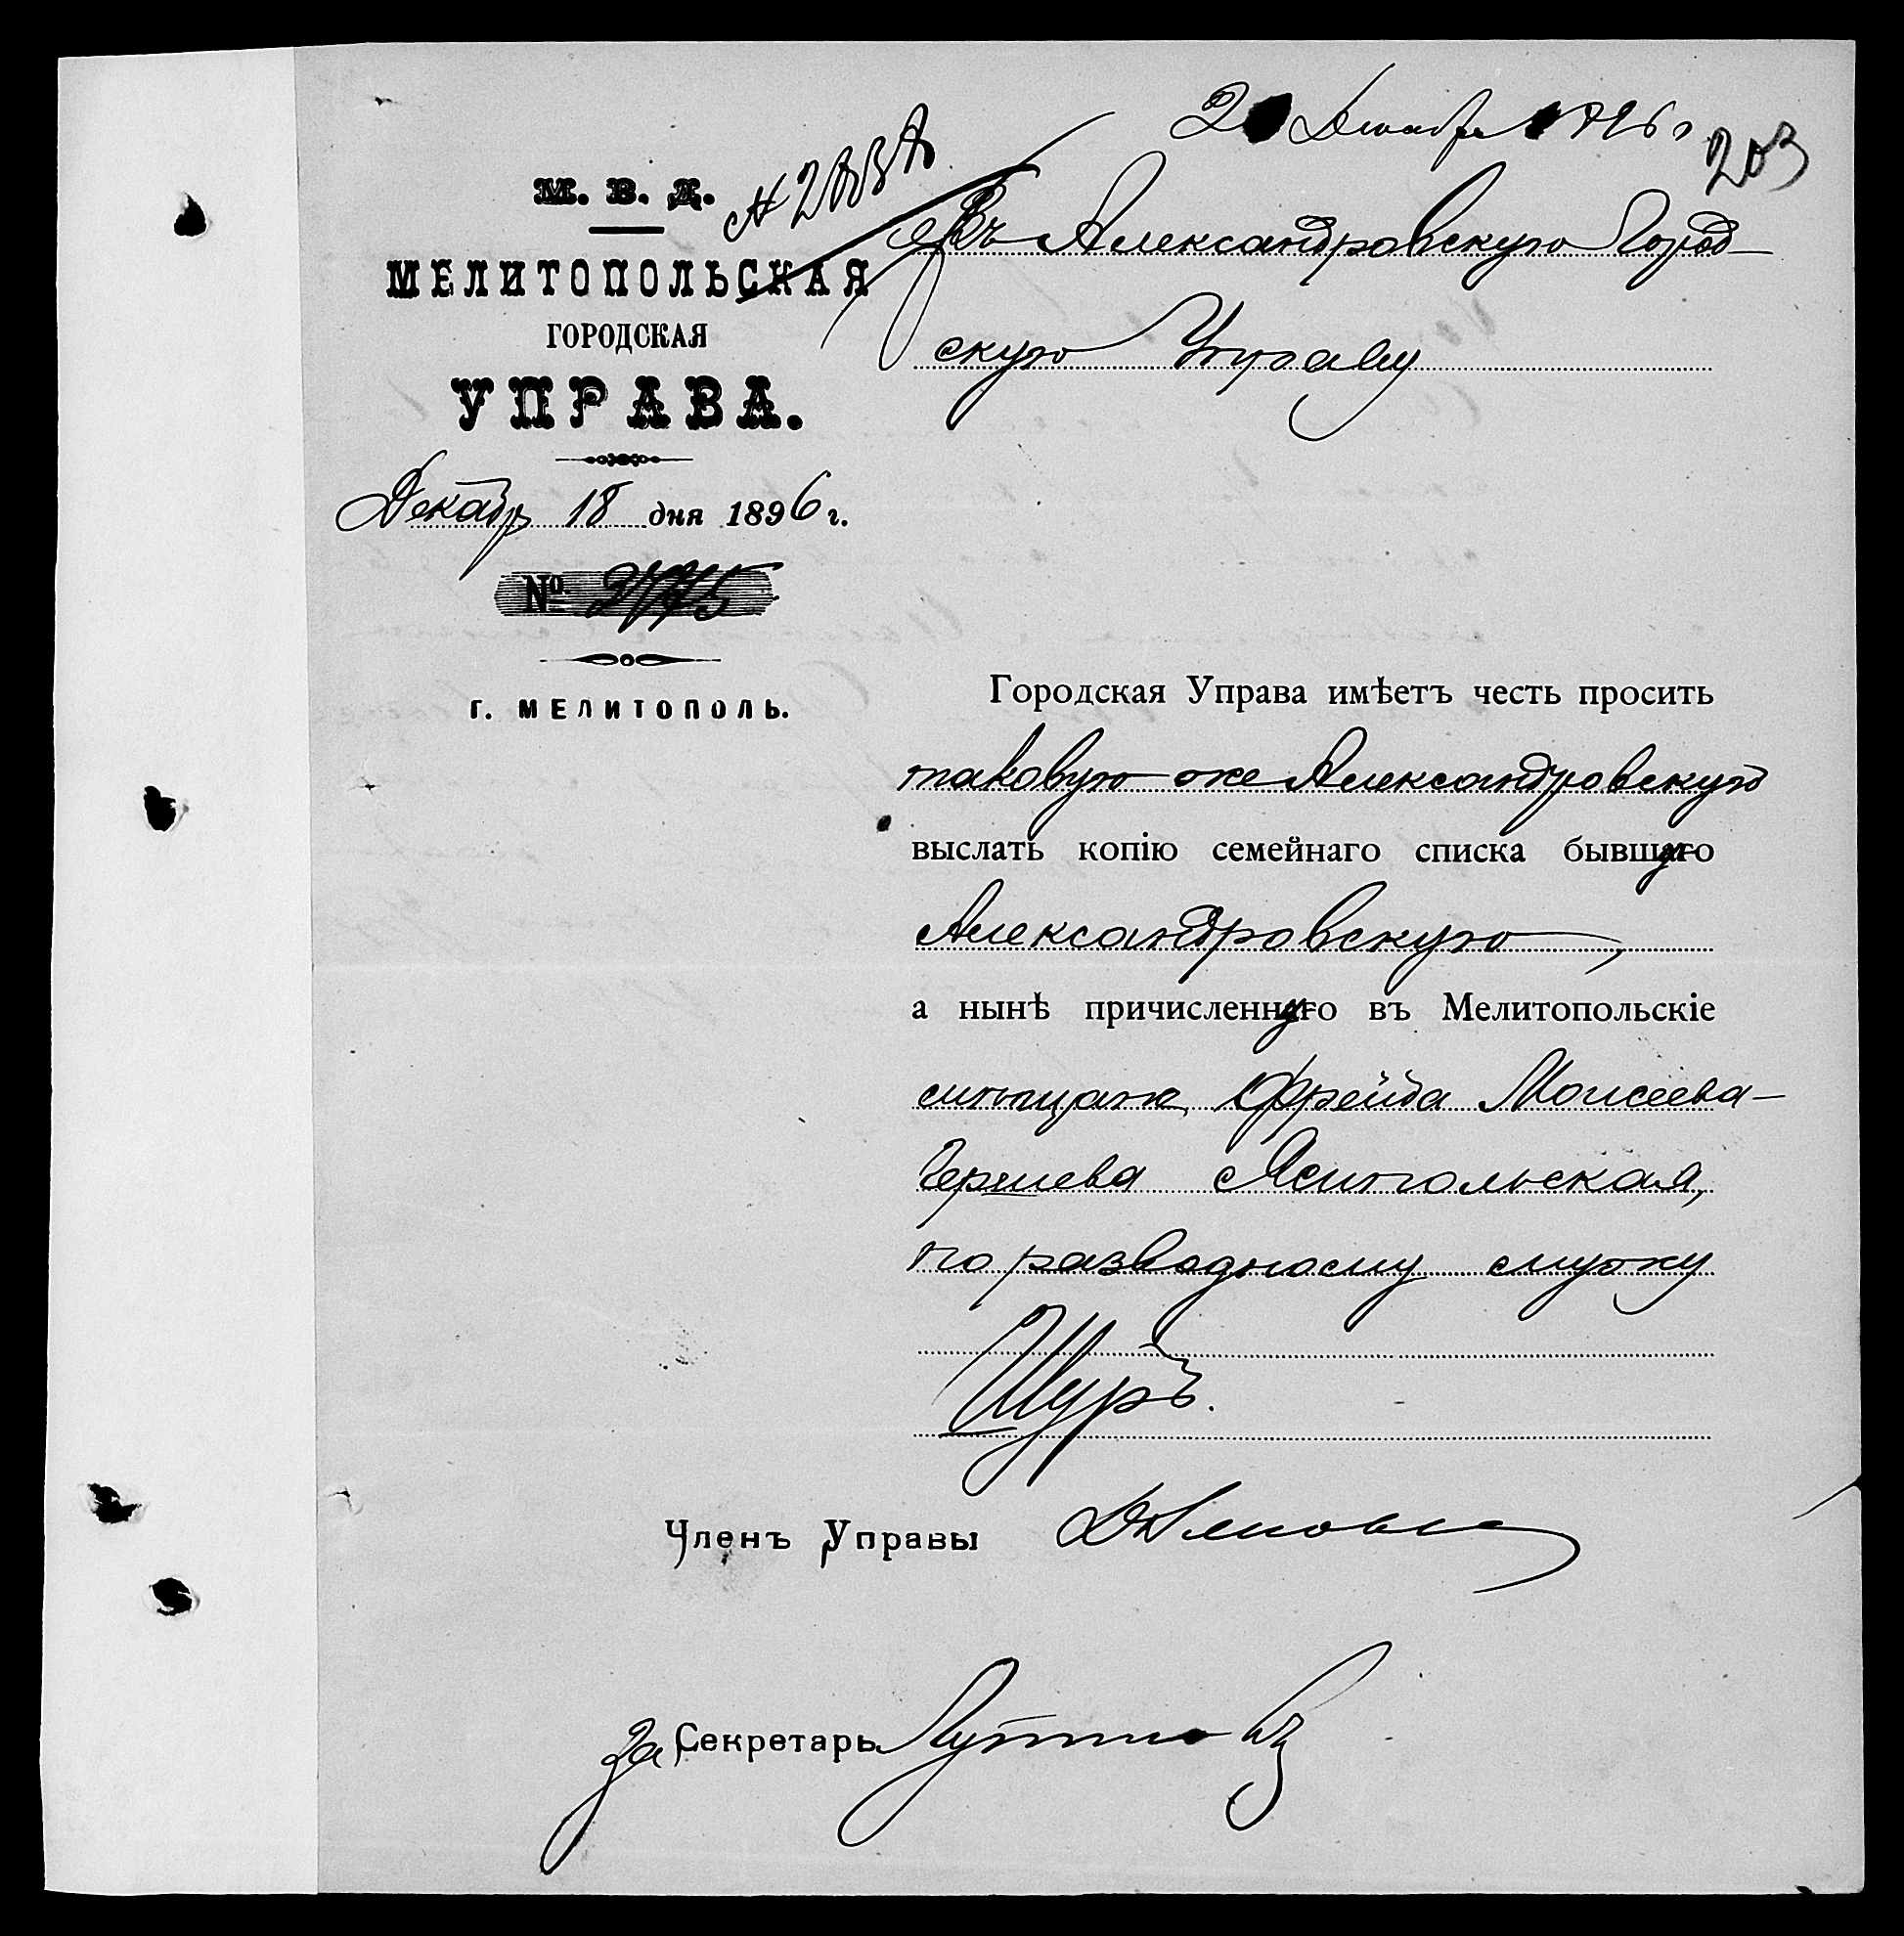 2 Декабря 1896 г
203
М. В. Д.
МЕЛИТОПОЛЬСКАЯ
ГОРОДСКАЯ
УПРАВА.
Декабр 18 дня 1896 г.
№
Г. МЕЛИТОПОЛЬ.
Въ Александровскую Город-
скую Управу
Городская Управа имѣетъ честь просить
таковую же Александровскую
выслать копію семейнаго списка бывшую
Александровскую,
а нынѣ причисленную въ Мелитопольскіе
Фрейда Моисеева-
Гершева Ямпольская,
по разводному мужу
Шуръ.
Членъ Управы
За Секретарь